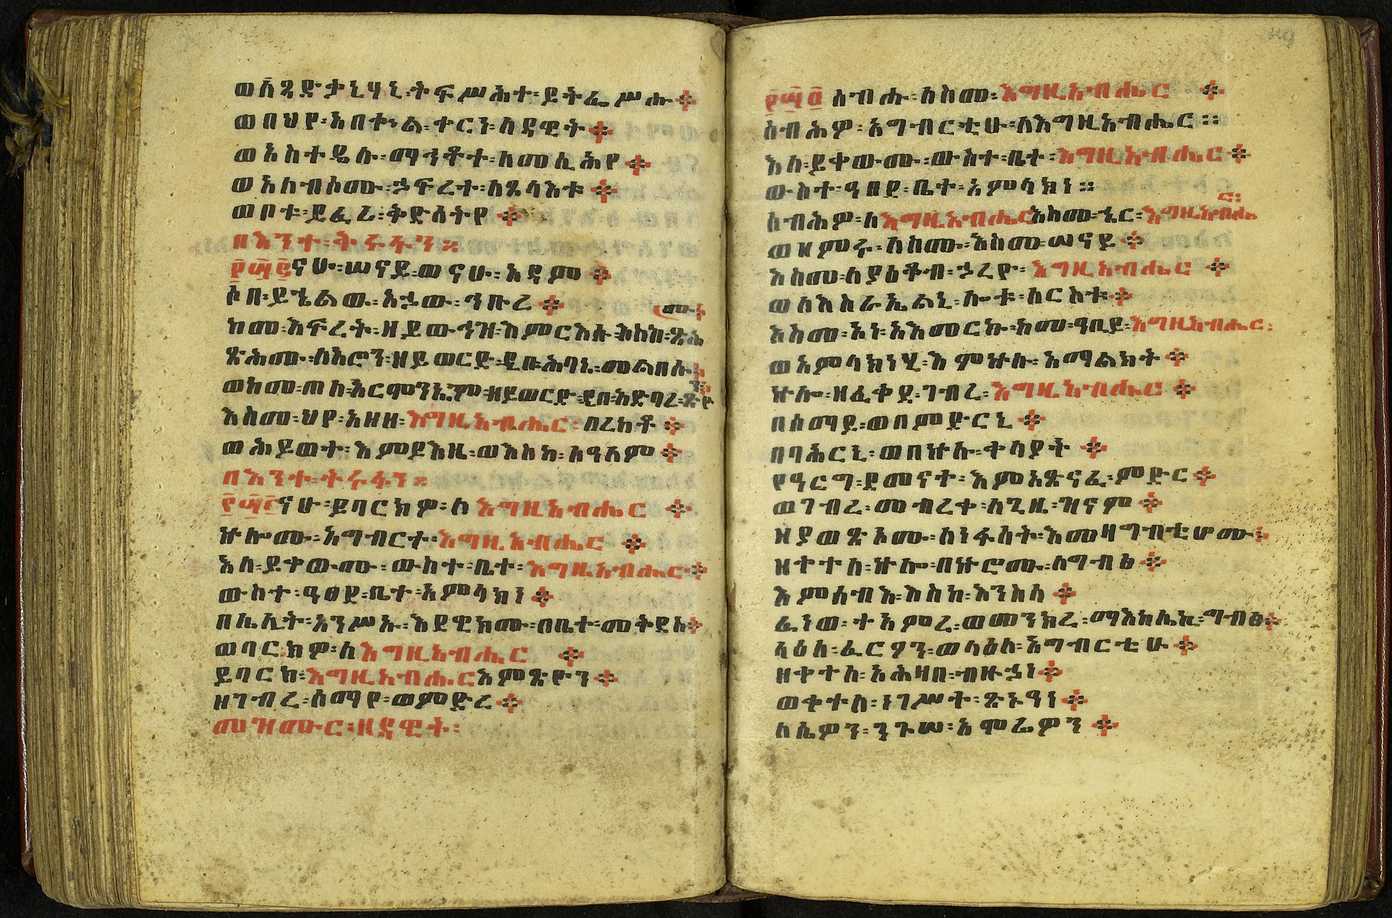 ወጻድቃኒሃኒ፡ትፍሥሕተ፡ይትፌሥሑ፨
ወበህየ፡አበቍል፡ቀርነ፡ለዳዊት፨
ወአስተዴሉ፡ማኅቶተ፡ለመሲሕየ፨
ወአለብሶሙ፡ኃፍረተ፡ለጸላእቱ፨
ወቦቱ፡ይፈሪ፡ቅድሳትየ፨
በእንተ፡ትሩፋን።
፻፴፪ናሁ፡ሠናይ፡ወናሁ፡አዳም፨
ሶበ፡ይኄልው፡አኃው፡ኅቡረ፨
ከመ፡እፍረት፡ዘይውኅዝ፡እምርእሱ፡
ጽሕሙ፡ለአሮን፡ዘይወርድ፡ዲበ፡ሕባኔ፡መልበሱ
ወከመ፡ጠለ፡አርሞንኤም፡ዘይወርድ፡ዲበ፡አድባረ፡ጽዮ
እስመ፡ህየ፡አዘዘ፡እግዚአብሔር፡በረከቶ፨
ወሕይወተ፡እምይእዜ፡ወእስከ፡ለዓለም፨
በእንተ፡ትሩፋን።
፻፴፫ናሁ፡ይባርክዎ፡ለእግዚአብሔር፨
ኵሎሙ፡አግብርተ፡እግዚአብሔር፨
እለ፡ይቀውሙ፡ውስተ፡ቤተ፡እግዚአብሔር፨
ውስተ፡ዓፀደ፡ቤተ፡አምላክነ፨
በሌሊት፡አንሥኡ፡እደዊክሙ፡በቤተ፡መቅደስ
ወባርክዎ፡ለእግዚአብሔር፨
ይባርከ፡እግዚአብሔር፡እምጽዮን፨
ዘገብረ፡ሰማየ፡ወምድረ፨
መዝሙር፡ዘዳዊት፡
፻፴፬ ሰብሑ፡ለስሙ፡እግዚአብሔር፨
ሰብሕዎ፡አግብርቲሁ፡ለእግዚአብሔር።
እለ፡ይቀውሙ፡ውስተ፡ቤተ፡እግዚአብሔር፨
ውስተ፡ዓፀደ፡ቤተ፡አምላክነ።
ሰብሕዎ፡ለእግዚአብሔር፡እስመ፡ኄር፡እግዚአብሔር
ወዘምሩ፡ለስሙ፡እስመ፡ሠናይ፨
እስመ፡ለያዕቆብ፡ኃረዮ፡እግዚአብሔር፨
ወለእስራኤልኒ፡ሎቱ፡ለርስቱ፨
እስመ፡አነ፡አእመርኩ፡ከመ፡ዓቢይ፡እግዚአብሔር፡
ወአምላክነሂ፡እምኵሉ፡አማልክት፨
ኵሎ፡ዘፈቀደ፡ገብረ፡እግዚአብሔር፨
በሰማይ፡ወበምድርኒ፨
በባሕርኒ፡ወበኵሉ፡ቀላያት፨
የዓርግ፡ደመናተ፡እምአጽናፈ፡ምድር፨
ወገብረ፡መብረቀ፡ለጊዜ፡ዝናም፨
ዘያወጽኦሙ፡ለነፋሳት፡እመዛግብቲሆሙ፡
ዘቀተለ፡ኵሎ፡በኵሮሙ፡ለግብፅ፨
እምሰብእ፡እስከ፡እንስሳ፨
ፈነወ፡ተአምረ፡ወመንክረ፡ማእከሌኪ፡ግብፅ
ላዕለ፡ፈርዖን፡ወላዕለ፡አግብርቲሁ፨
ዘቀተለ፡አሕዛበ፡ብዙኃነ፨
ወቀተለ፡ነገሥተ፡ጽኑዓነ፨
ለሴዎን፡ንጉሠ፡አሞሬዎን፨